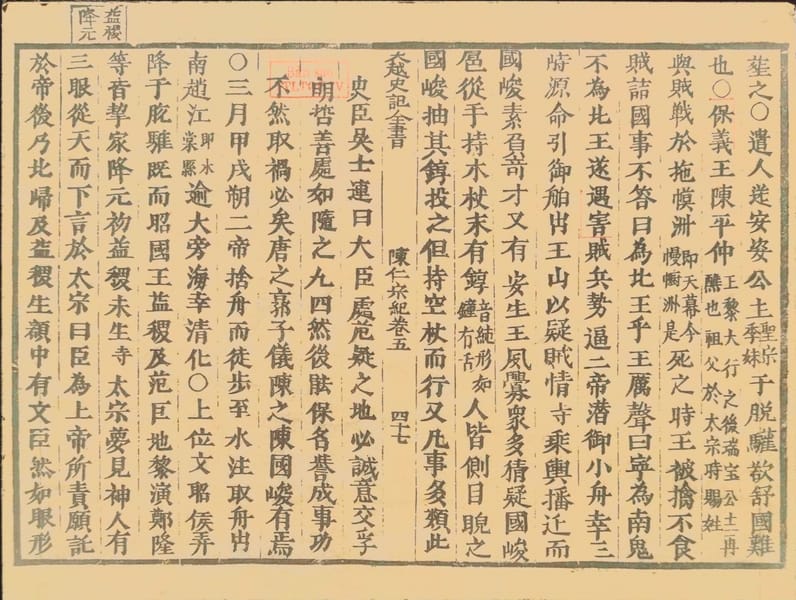 之〇遣人送安姿公主聖宗季妹于脫驩欲舒國難
也〇保義王陳平仲王黎大行之後瑞宝公主再醮也祖父於太宗時賜姓
與賊戰於拖幙洲即天幕今慢幮洲是死之時王被擒不食
賊詰國事不答曰為北王乎王厲聲曰寧為南鬼
不為北王遂遇害賊兵勢逼二帝潜御小舟幸三
峙源命引御舶出玉山以疑賊情寺乘輿播迁而
國峻素負奇才又有安生王夙釁衆多猜疑國峻
扈從手持木杖末有錞音純形如鐘有舌人皆側目睨之
國峻抽其錞投之但持空杖而行又凡事多類此
大越史記全書 陳仁宗紀卷五 四十七
史臣吳士連曰大臣處危疑之地必誠意交孚
明哲善處如隨之九四然後能保名譽成事功
不然取禍必矣唐之郭子儀陳之陳國峻有焉
〇三月甲戌朔二帝捨舟而徒步至水注取舟出
南趙江即水棠縣逾大旁海幸清化〇上位文昭侯弄
降于脫驩既而昭國王益稷及范巨地黎演鄭隆
等皆挈家降元初益稷未生寺太宗夢見神人有
三眼從天而下言於太宗曰臣為上帝所責願託
於帝後乃北歸及益稷生額中有文𦣞然如眼形
益稷降元